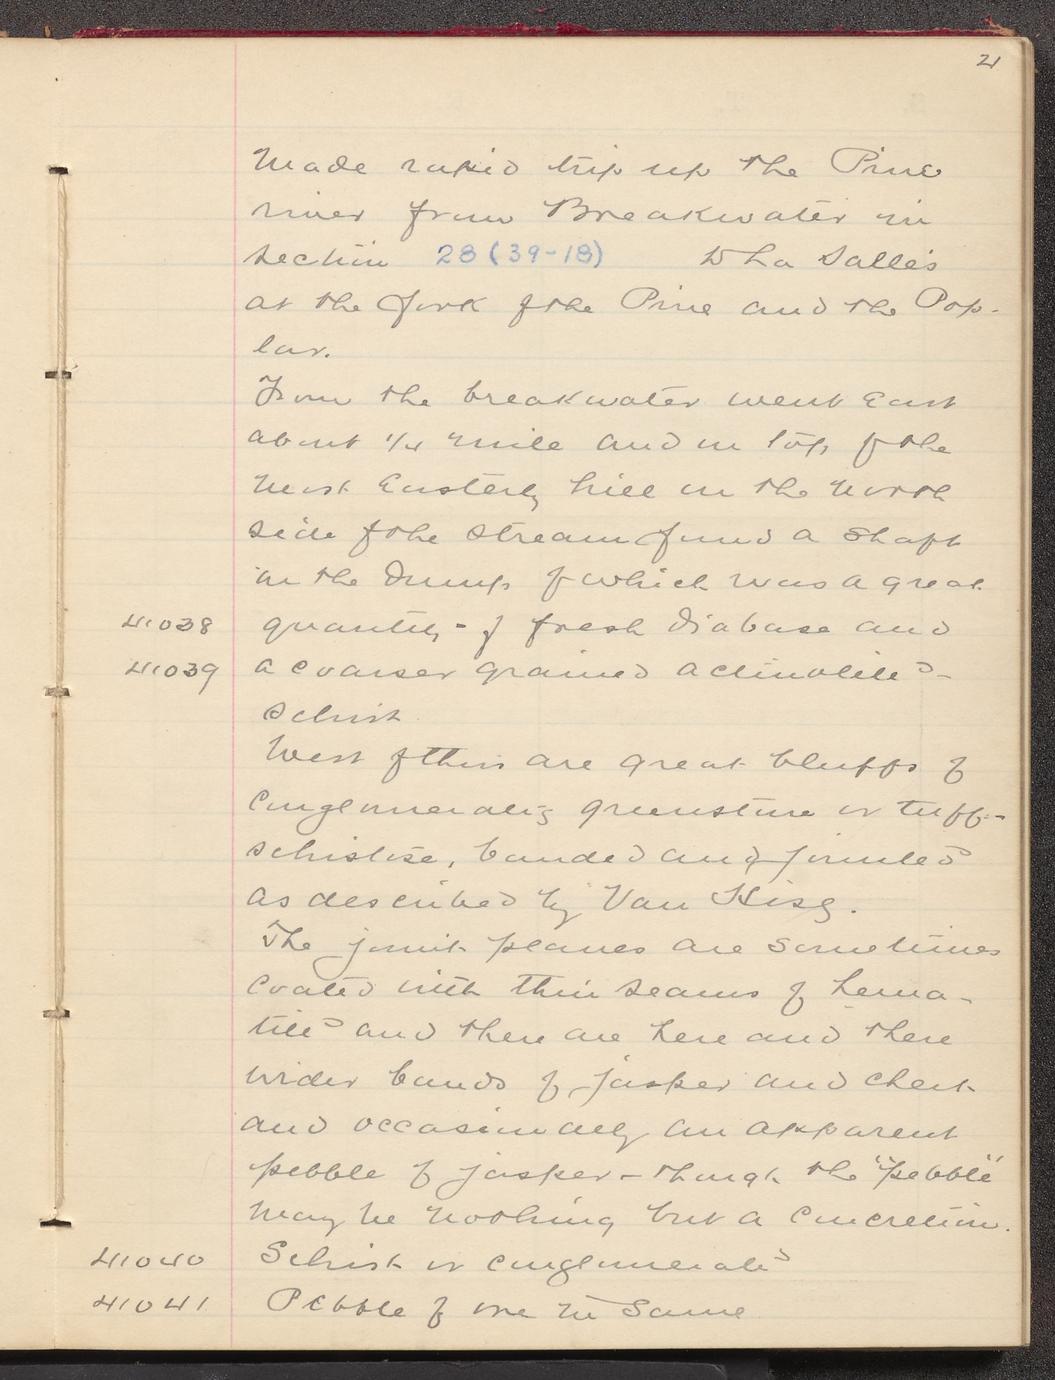 21
Made rapid trip up the Pine
river from Breakwater in
section 28 (39-18) to La Salle's
at the fork of the Pine and the Pop-
lar.
From the breakwater went East
about 1/4 mile and on top of the
most Easterly hill on the north
side of the stream found a shaft
in the dump of which was a great
41038 quantity - of fresh diabase and
41039 a coarser grained actinolite-
schist
West of this are great bluffs of
conglomeratic greenstone or tuff-
schistose, banded and jointed
as described by Van Hise.
The joint planes are sometimes
coated with thin seams of hema-
tite and there are here and there
wider bands of jasper and chert
and occasionally an apparent
pebble of jasper - though the "pebble"
may be nothing but a concretion.
41040 Schist or conglomerate
41041 Pebble of ore in same